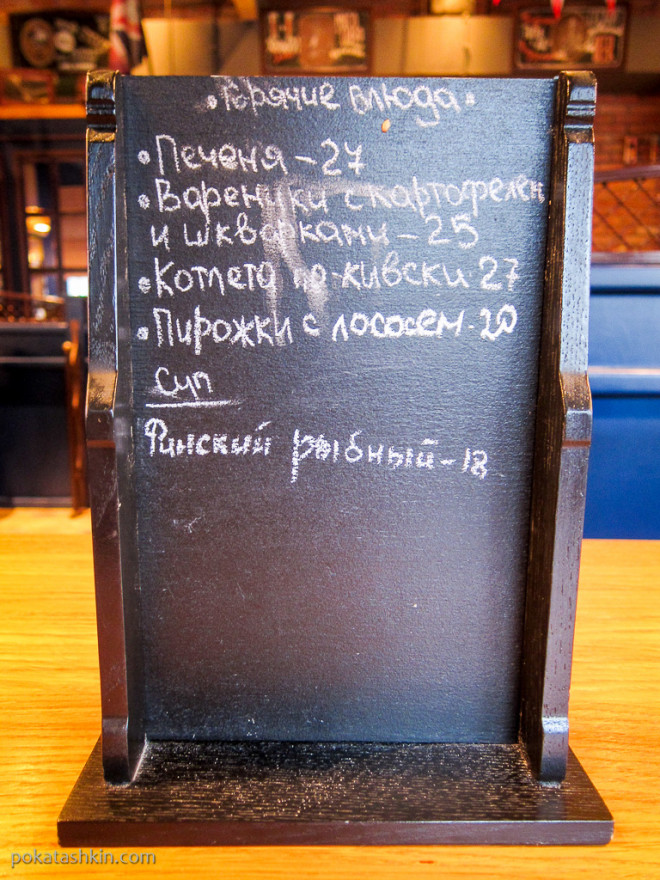 • Горячие блюда •
• Печеня - 27
• Вареники с картофелем
и шкварками - 25
• Котлета по-киевски 27
• Пирожки с лососем - 20
Суп
Финский рыбный - 18
pokatashkin.com